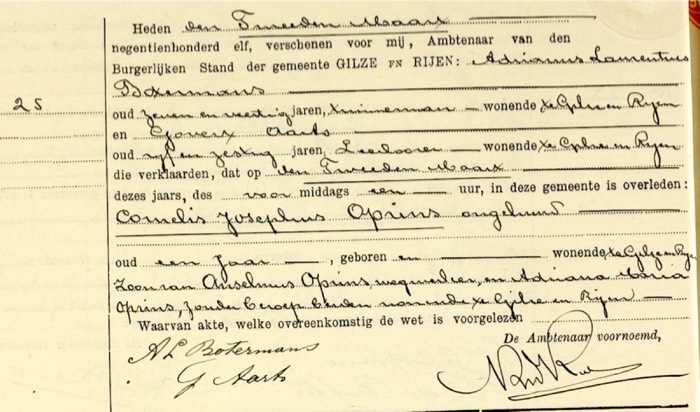 Heden den Tweeden Maart
negentienhonderd elf, verschenen voor mij, Ambtenaar van den
Burgerlijken Stand der gemeente GILZE EN RIJEN: Adrianus Laurentius
Botermans
25
oud zeven en veertig jaren, timmerman wonende te Gilze en Rijen
en Govert Aarts
oud vijf en zestig jaren, Leerlooier wonende te Gilze en Rijen
die verklaarden, dat op den Tweeden Maart
dezes jaars, des voor middags een uur, in deze gemeente is overleden:
Cornelis Josephus Oprins ongehuwd
oud een jaar, geboren en wonende te Gilze en Rijen
Zoon van Anselmus Oprins, wegwerker, en Adriana Maria
Oprins, zonder beroep beiden wonende te Gilze en Rijen
Waarvan akte, welke overeenkomstig de wet is voorgelezen
De Ambtenaar voornoemd,
AL Botermans
G Aarts